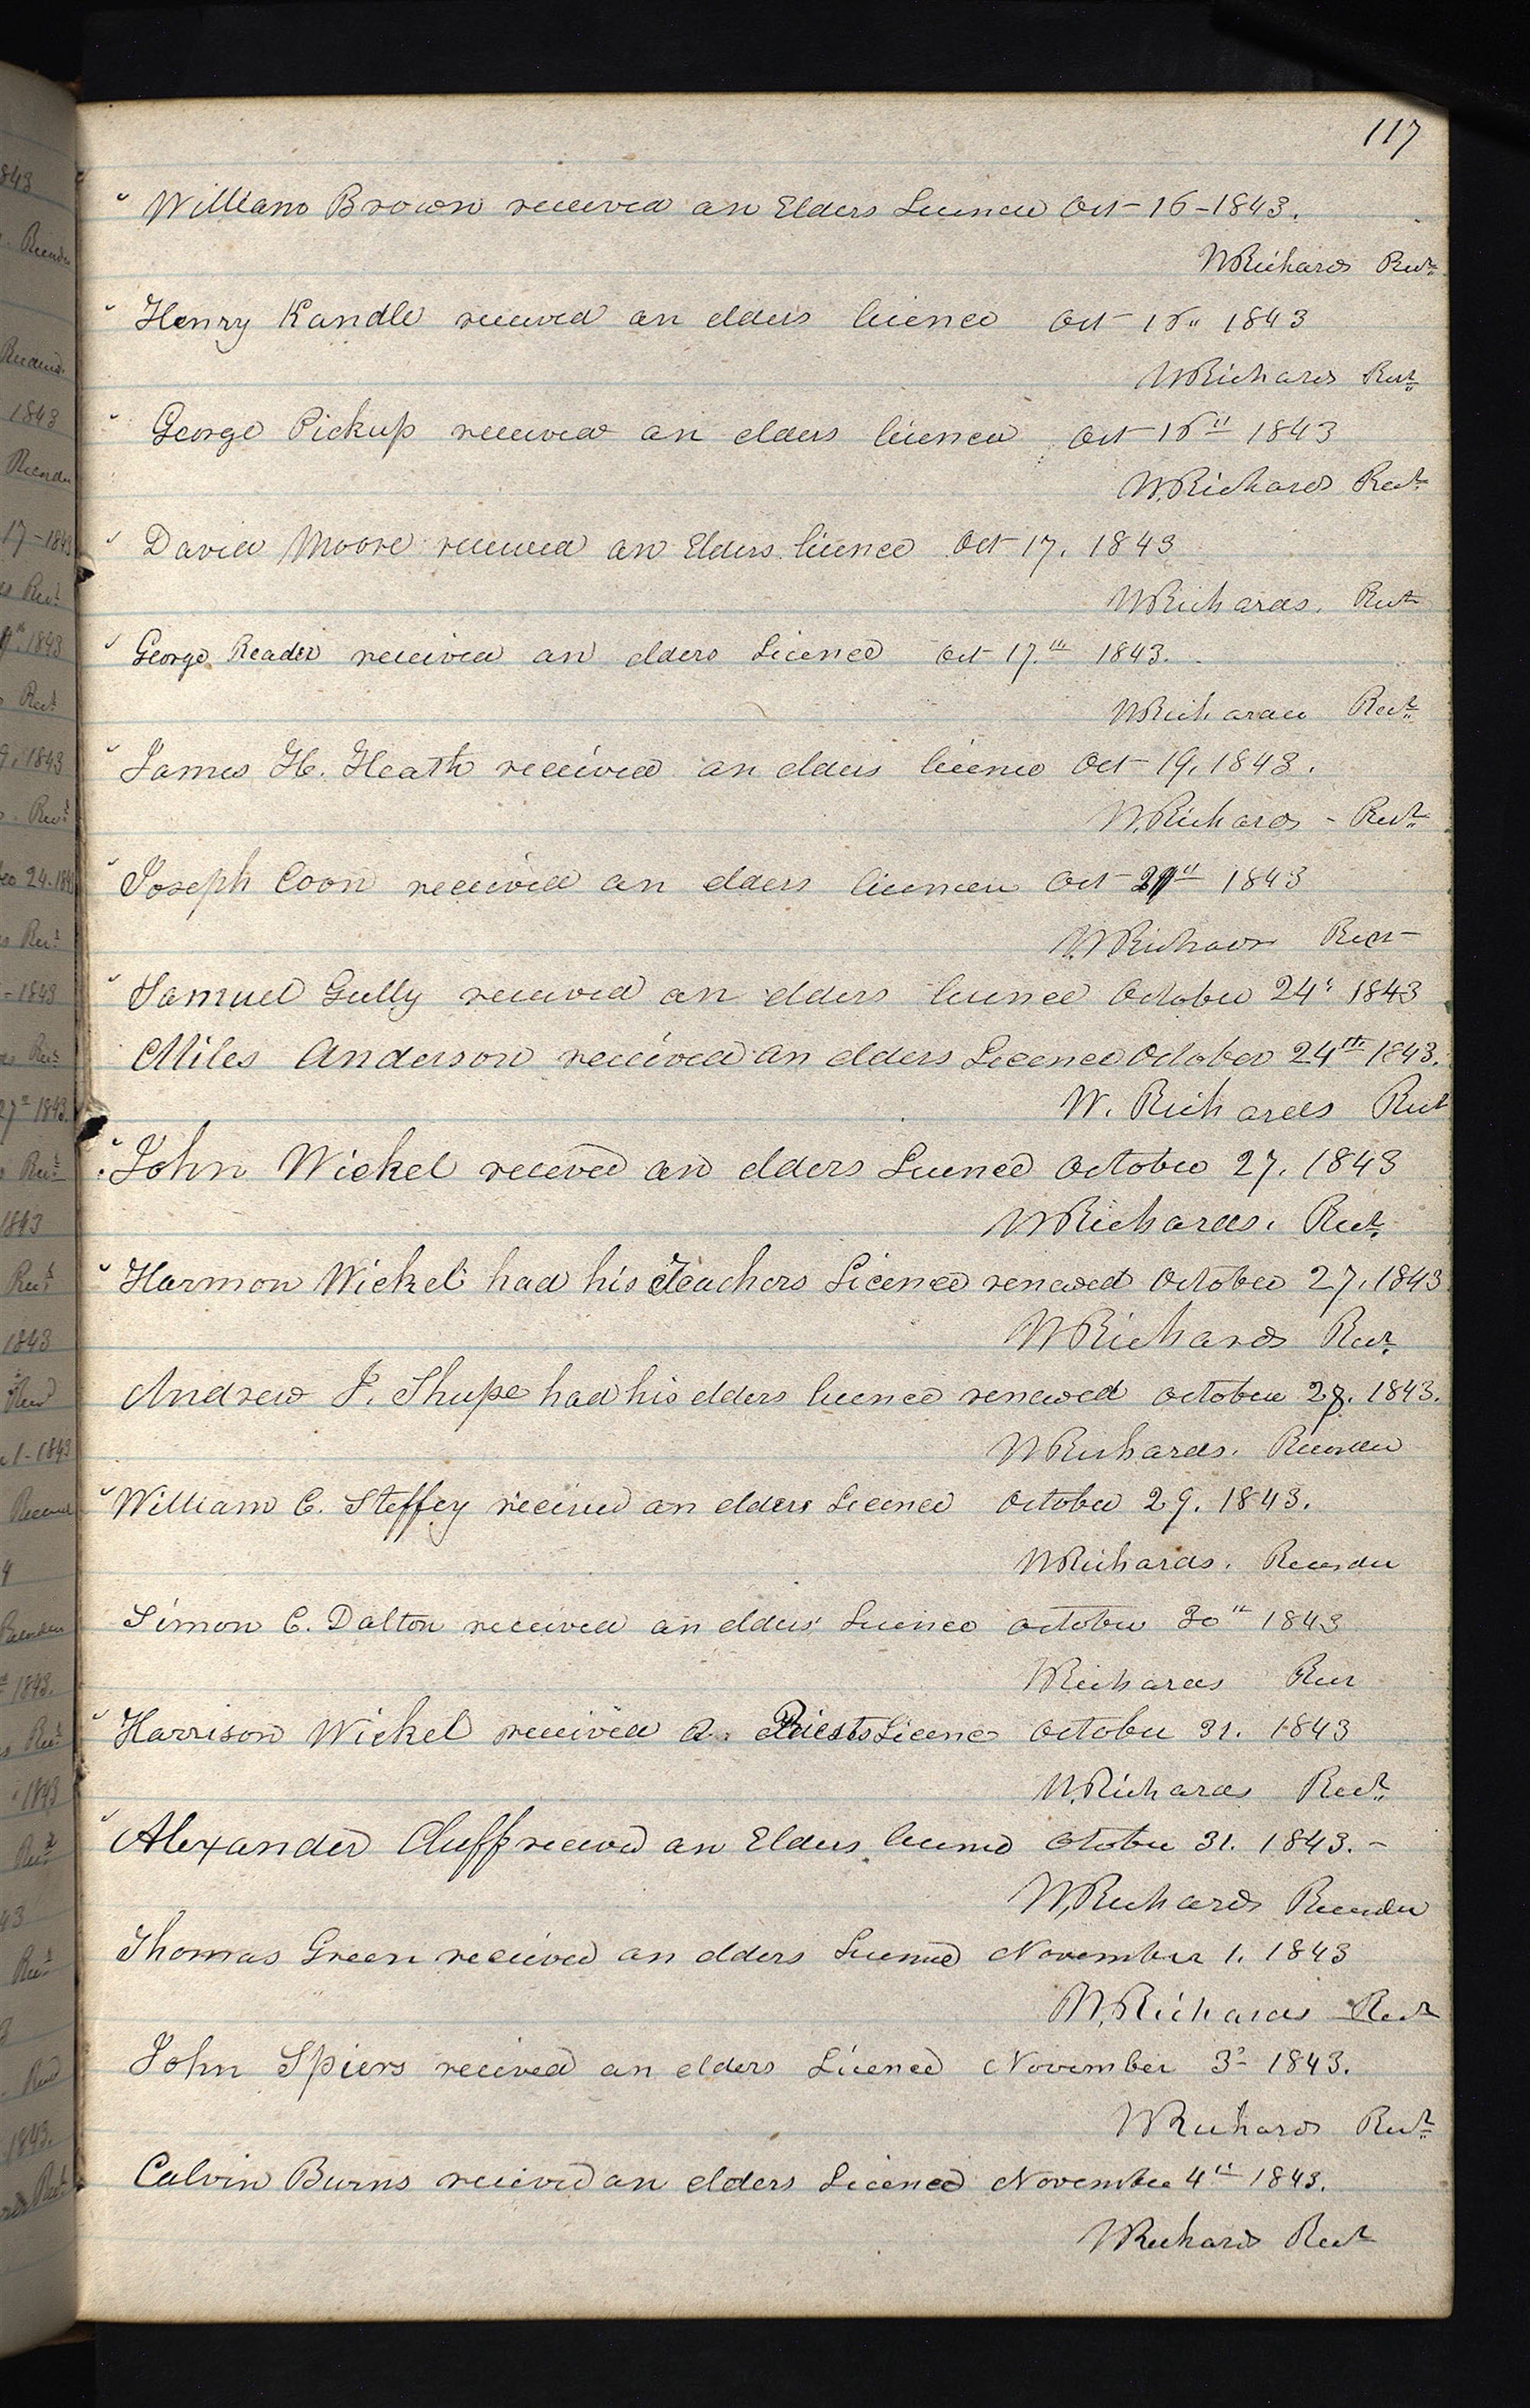 117
William Brown received an Elders Licence Oct- 16-1843.
WRichards Recr.
Henry Kandle received an elders licence Oct- 16" 1843
WRichards Recr.
George Pickup received an elders licence Oct 16th 1843
W.Richards Recr.
David Moore received an Elders licence Oct 17. 1843
WRichards. Recr
George Reader received an elders Licence Oct 17.th 1843.
WRichards Recr.
James H. Heath received an elders licence Oct- 19. 1843.
W.Richards - Recr.
Joseph Coon received an elders licence Oct 1843
W.Richards Recr
Samuel Gully received an elders licence October 24th 1843
Miles Anderson received an elders Licence October 24th 1843.
W. Richards Recr
John Wickel receved an elders Licence October 27. 1843
WRichards. Recr.
Harmon Wickel had his Teachers Licence renewed October 27. 1843
WRichards Recr.
Andrew J. Shupe had his elders licence renewed october 28. 1843.
WRichards. Recorder
William C. Steffey recieved an elders Licence October 29. 1843.
WRichards. Recorder
Simon C. Dalton received an elders Licence october 30th 1843
WRichards Recr
Harrison Wickel received a Priests Licence October 31. 1843
W.Richards Recr.
Alexander Cluff received an Elders licence October 31. 1843. -
W.Richards Recorder
Thomas Green received an elders Licence November 1. 1843
W.Richards Recr
John Spiers received an elders Licence November 3d 1843.
WRichards Recr.
Calvin Burns received an elders Licence November 4th 1843.
WRichards Recr